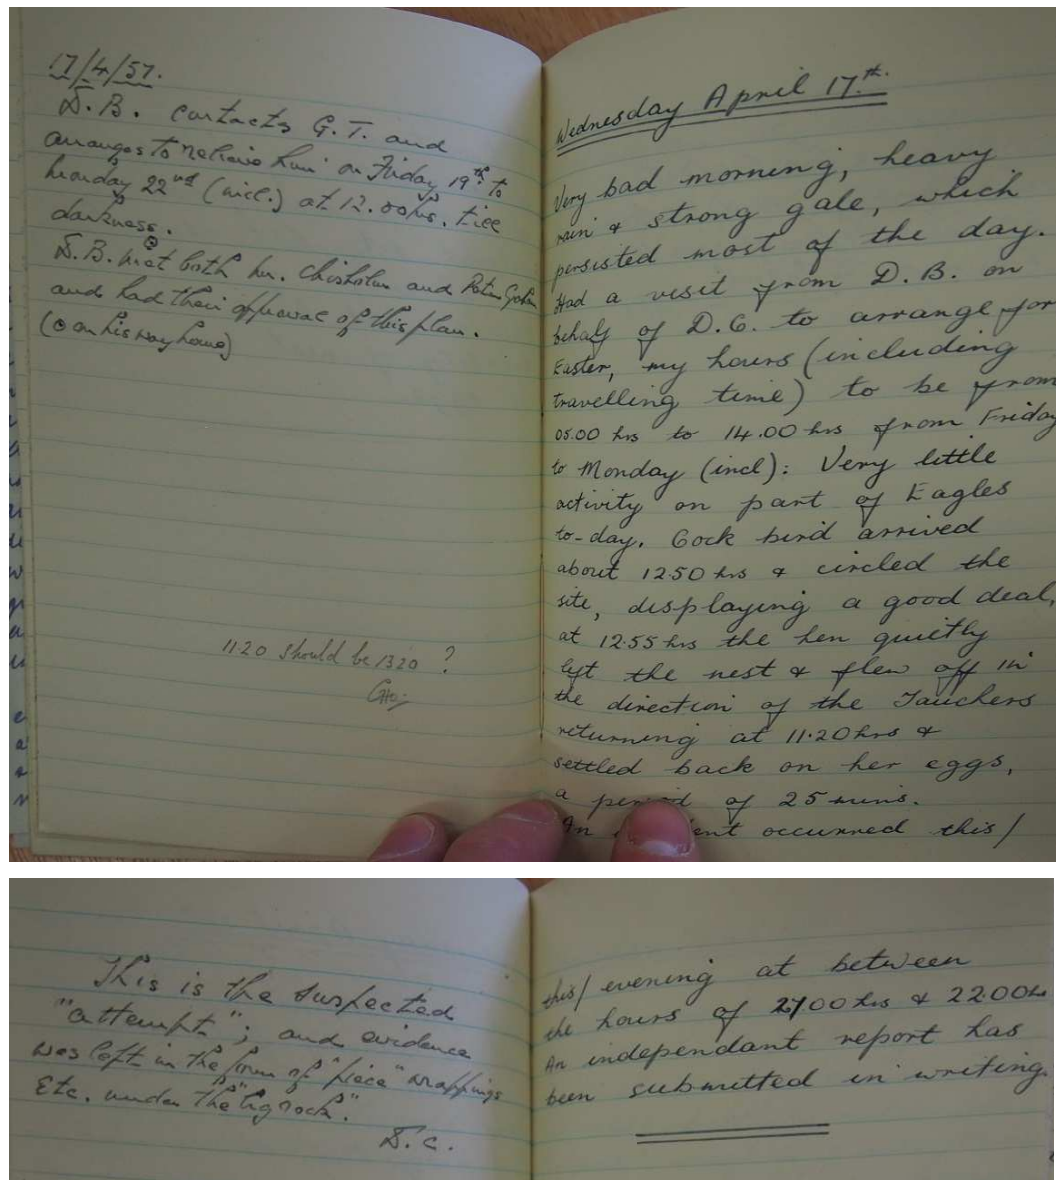 17/4/57.
D.B. contacts G.T. and
arranges to relieve him on Friday 19th. to
Monday 22nd (incl.) at 12.00hrs. till
darkness.
D.B. met both Mr. Chisholm and Peter
and had their approval of this plan.
(on his way home)
11.20 should be 1320 ?
Wednesday April 17th.
Very bad morning, heavy
rain & strong gale, which
persisted most of the day.
Had a visit from D.B. on
behalf of D.C. to arrange for
Easter, my hours (including
travelling time) to be from
05.00 hrs to 14.00 hrs from Friday
to Monday (incl): Very little
activity on part of Eagles
to-day. Cock bird arrived
about 12.50 hrs & circled the
site, displaying a good deal,
at 12.55 hrs the hen quietly
left the nest & flew off in
the direction of the Tauchers
returning at 11.20 hrs &
settled back on her eggs,
a period of 25 mins.
An occurred this/
This is the suspected
"attempt"; and evidence
was left in the form of "piece" wrappings
Etc. under the "big rock".
D.C.
this/ evening at between
the hours of 2100 hrs & 2200h
An independant report has
been submitted in writing.